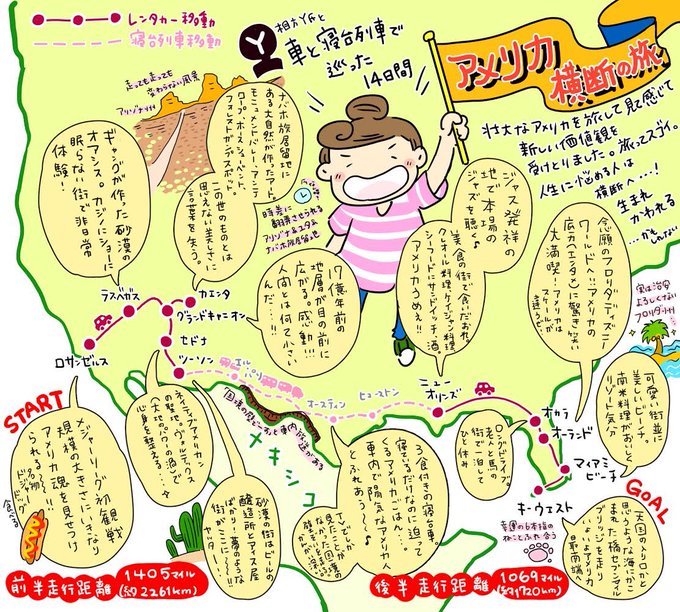 レンタカー移動
寝台列車移動
Y
相方Y氏と
車と寝台列車で
巡った
14日間
アメリカ
横断の旅
壮大なアメリカを旅して見て感じて
新しい価値観を
受けとりました。旅ってスゴイ。
人生に悩める人は
横断へ…!
生まれ
かわれる
…かもしんない
走っても走っても
変わらない風景
アリゾナ州
ナバホ居留地に
ある大自然が作ったアート。
モニュメントバレー、アンテロ
ープ、ホースシューベント、
フォレストガンプスポット。
この世のものとは
思えない美しさに
言葉を失う。
時差に
翻弄させられる
アリゾナ&ユタ&
ナバホ居留地
ギャングが作った砂漠の
オアシス。カジノにショーに
眠らない街で非日常
体験!
ジャズ発祥の
地で本場の
ジャズを聴く♪
美食の街で食いだおれ。
クレオール料理、ケイジャン料理
シーフード・サンドイッチ・酒。
アメリカうめえ!!
念願のフロリダディズニー
ワールドへ!!アメリカの
底力(エンタメ)に驚き、笑い
大満喫!アメリカは
スケールが
違うぜ
実は治安
よろしくない
フロリダ州
17億年前の
地層が目の前に
広がる。感動!!!
人間とは何て小さい
んだ…!!
ラスベガス
カエンタ
グランドキャニオン
セドナ
ツーソン
ロサンゼルス
エルパソ
オースティン
ヒューストン
ニュー
オリンズ
オカラ
オーランド
マイアミ
ビーチ
キーウエスト
START
GOAL
メキシコ
メジャーリーグ初観戦
規模の大きさに、いきなり
アメリカ魂を見せつけ
られる!
名物
ドジャードッグ
食べてる
ネイティブアメリカン
の聖地。ヴォルテックス
(大地のパワーの渦)で
心身を整える…
砂漠の街はビールの
醸造所とアイス屋
ばかり!夢のような
街がここに…
ヤッター!!!
3食付きの寝台車。
寝ているだけなのに迫って
くるアメリカごはん…。
車内で陽気なアメリカ人
とふれあう〜♪
ロングドライブは
老人と馬の
街で一泊して
ひと休み
可愛い街並に
美しいビーチ。
南米料理がおいしく
リゾート気分
天国の入り口かと
思うような海にかこ
まれた橋、セブンマイル
ブリッジを走り
いよいよアメリカ
最南端へ
幸運の6本指の
ねことふれ合う
前半走行距離
1405マイル
(約2261km)
後半走行距離
1069マイル
(約1720km)